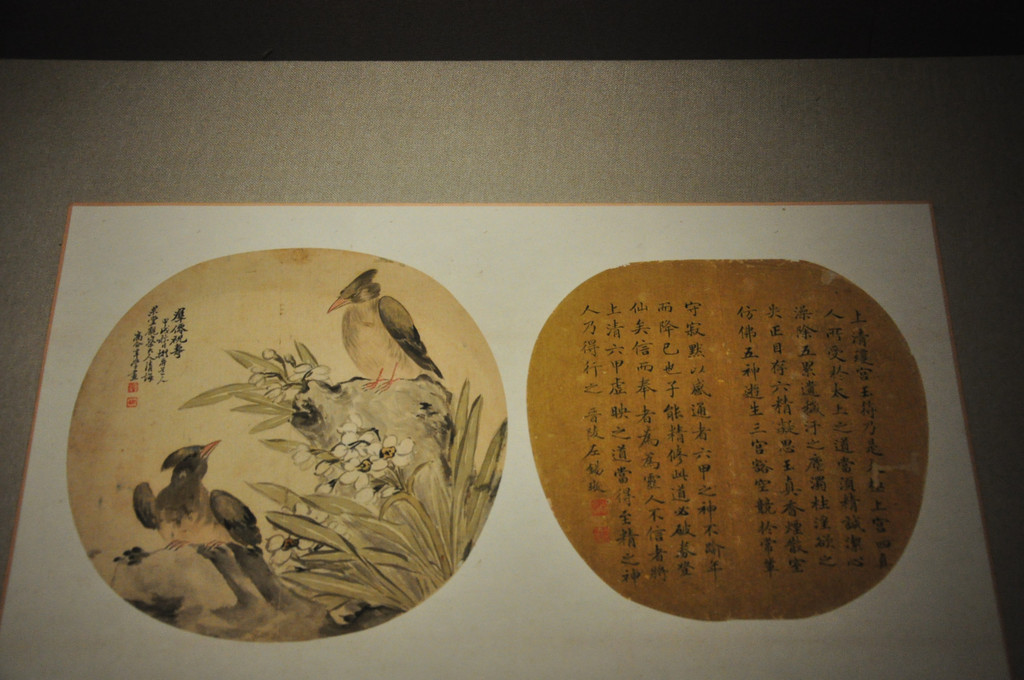 上清瓊宮玉符乃是太極上宮四真
人所受於太上之道當須精誠潔心
澡除五累遺穢汙之塵濁杜淫欲之
失正目存六精凝思玉真香煙散室
仿佛五神遊生三宮豁空競於常輩
守寂默以感通者六甲之神不踰年
而降已也子能精修此道必破券登
仙矣信而奉者為為靈人不信者將
上清六甲虛映之道當得至精之神
人乃得行之 晉陵左錫璇
群僊祝壽
甲戌
果堂觀察夫人清誨
畫